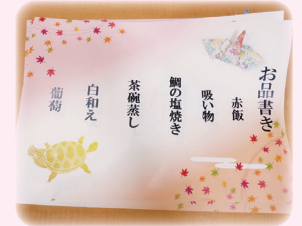 お品書き
赤飯
吸い物
鯛の塩焼き
茶碗蒸し
白和え
葡萄